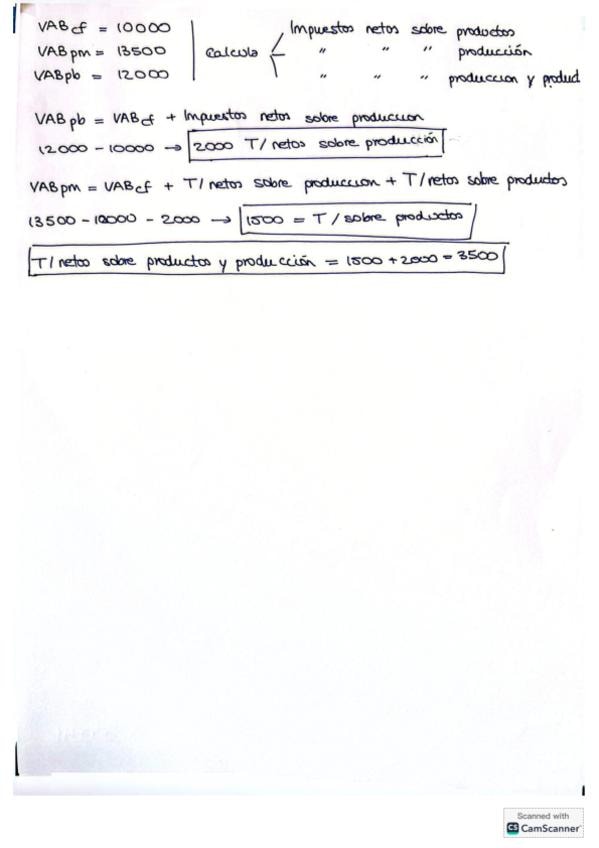 VABcf = 10000
VABpm = 13500
VABpb = 12000
Calcula
Impuestos netos sobre productos
" " " producción
" " " produccion y produd
VABpb = VABcf + Impuestos netos sobre produccion
12000 - 10000 → 2000 T/netos sobre producción
VABpm = VABcf + T/netos sobre produccion + T/netos sobre productos
13500 - 10000 - 2000 → 1500 = T/sobre productos
T/netos sobre productos y producción = 1500 + 2000 = 3500
Scanned with
CS CamScanner